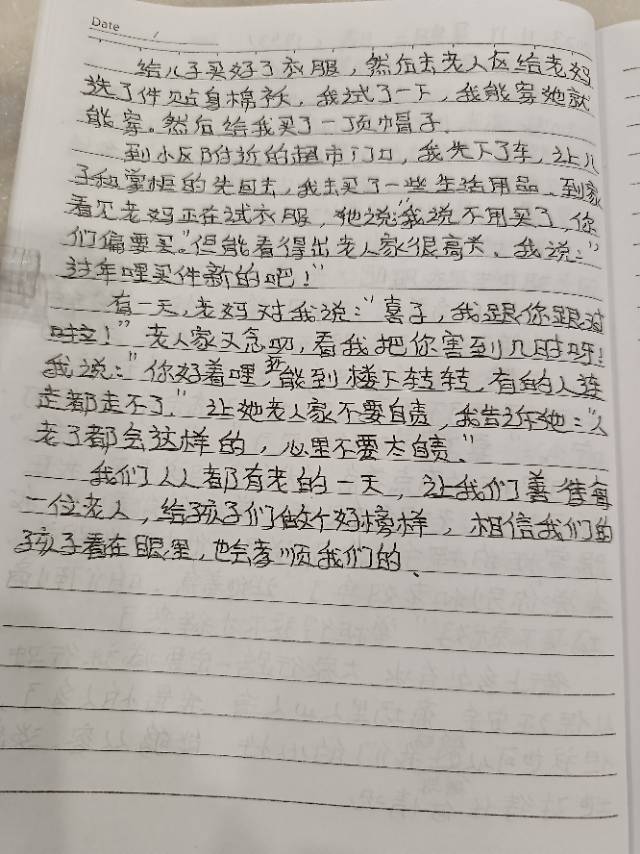 Date /
给儿子买好了衣服，然后去老人区给老妈
选了件贴身棉袄，我试了一下，我能穿她就
能穿。然后给我买了一顶帽子.
到小区附近的超市门口，我先下了车，让儿
子和掌柜的先回去，我去买了一些生活用品、到家
看见老妈正在试衣服，他说:"我说不用买了，你
们偏要买。"但能看得出老人家很高兴、我说:"
过年哩买件新的吧！"
有一天，老妈对我说："喜子，我跟你跟对
啦！"老人家又念叨，看我把你害到几时呀！
我说："你好着哩，还能到楼下转转，有的人连
走都走不了。"让她老人家不要自责，我告诉她："人
老了都会这样的，心里不要太自责。"
我们人人都有老的一天，让我们善待每
一位老人，给孩子们做个好榜样，相信我们的
孩子看在眼里，也会孝顺我们的、